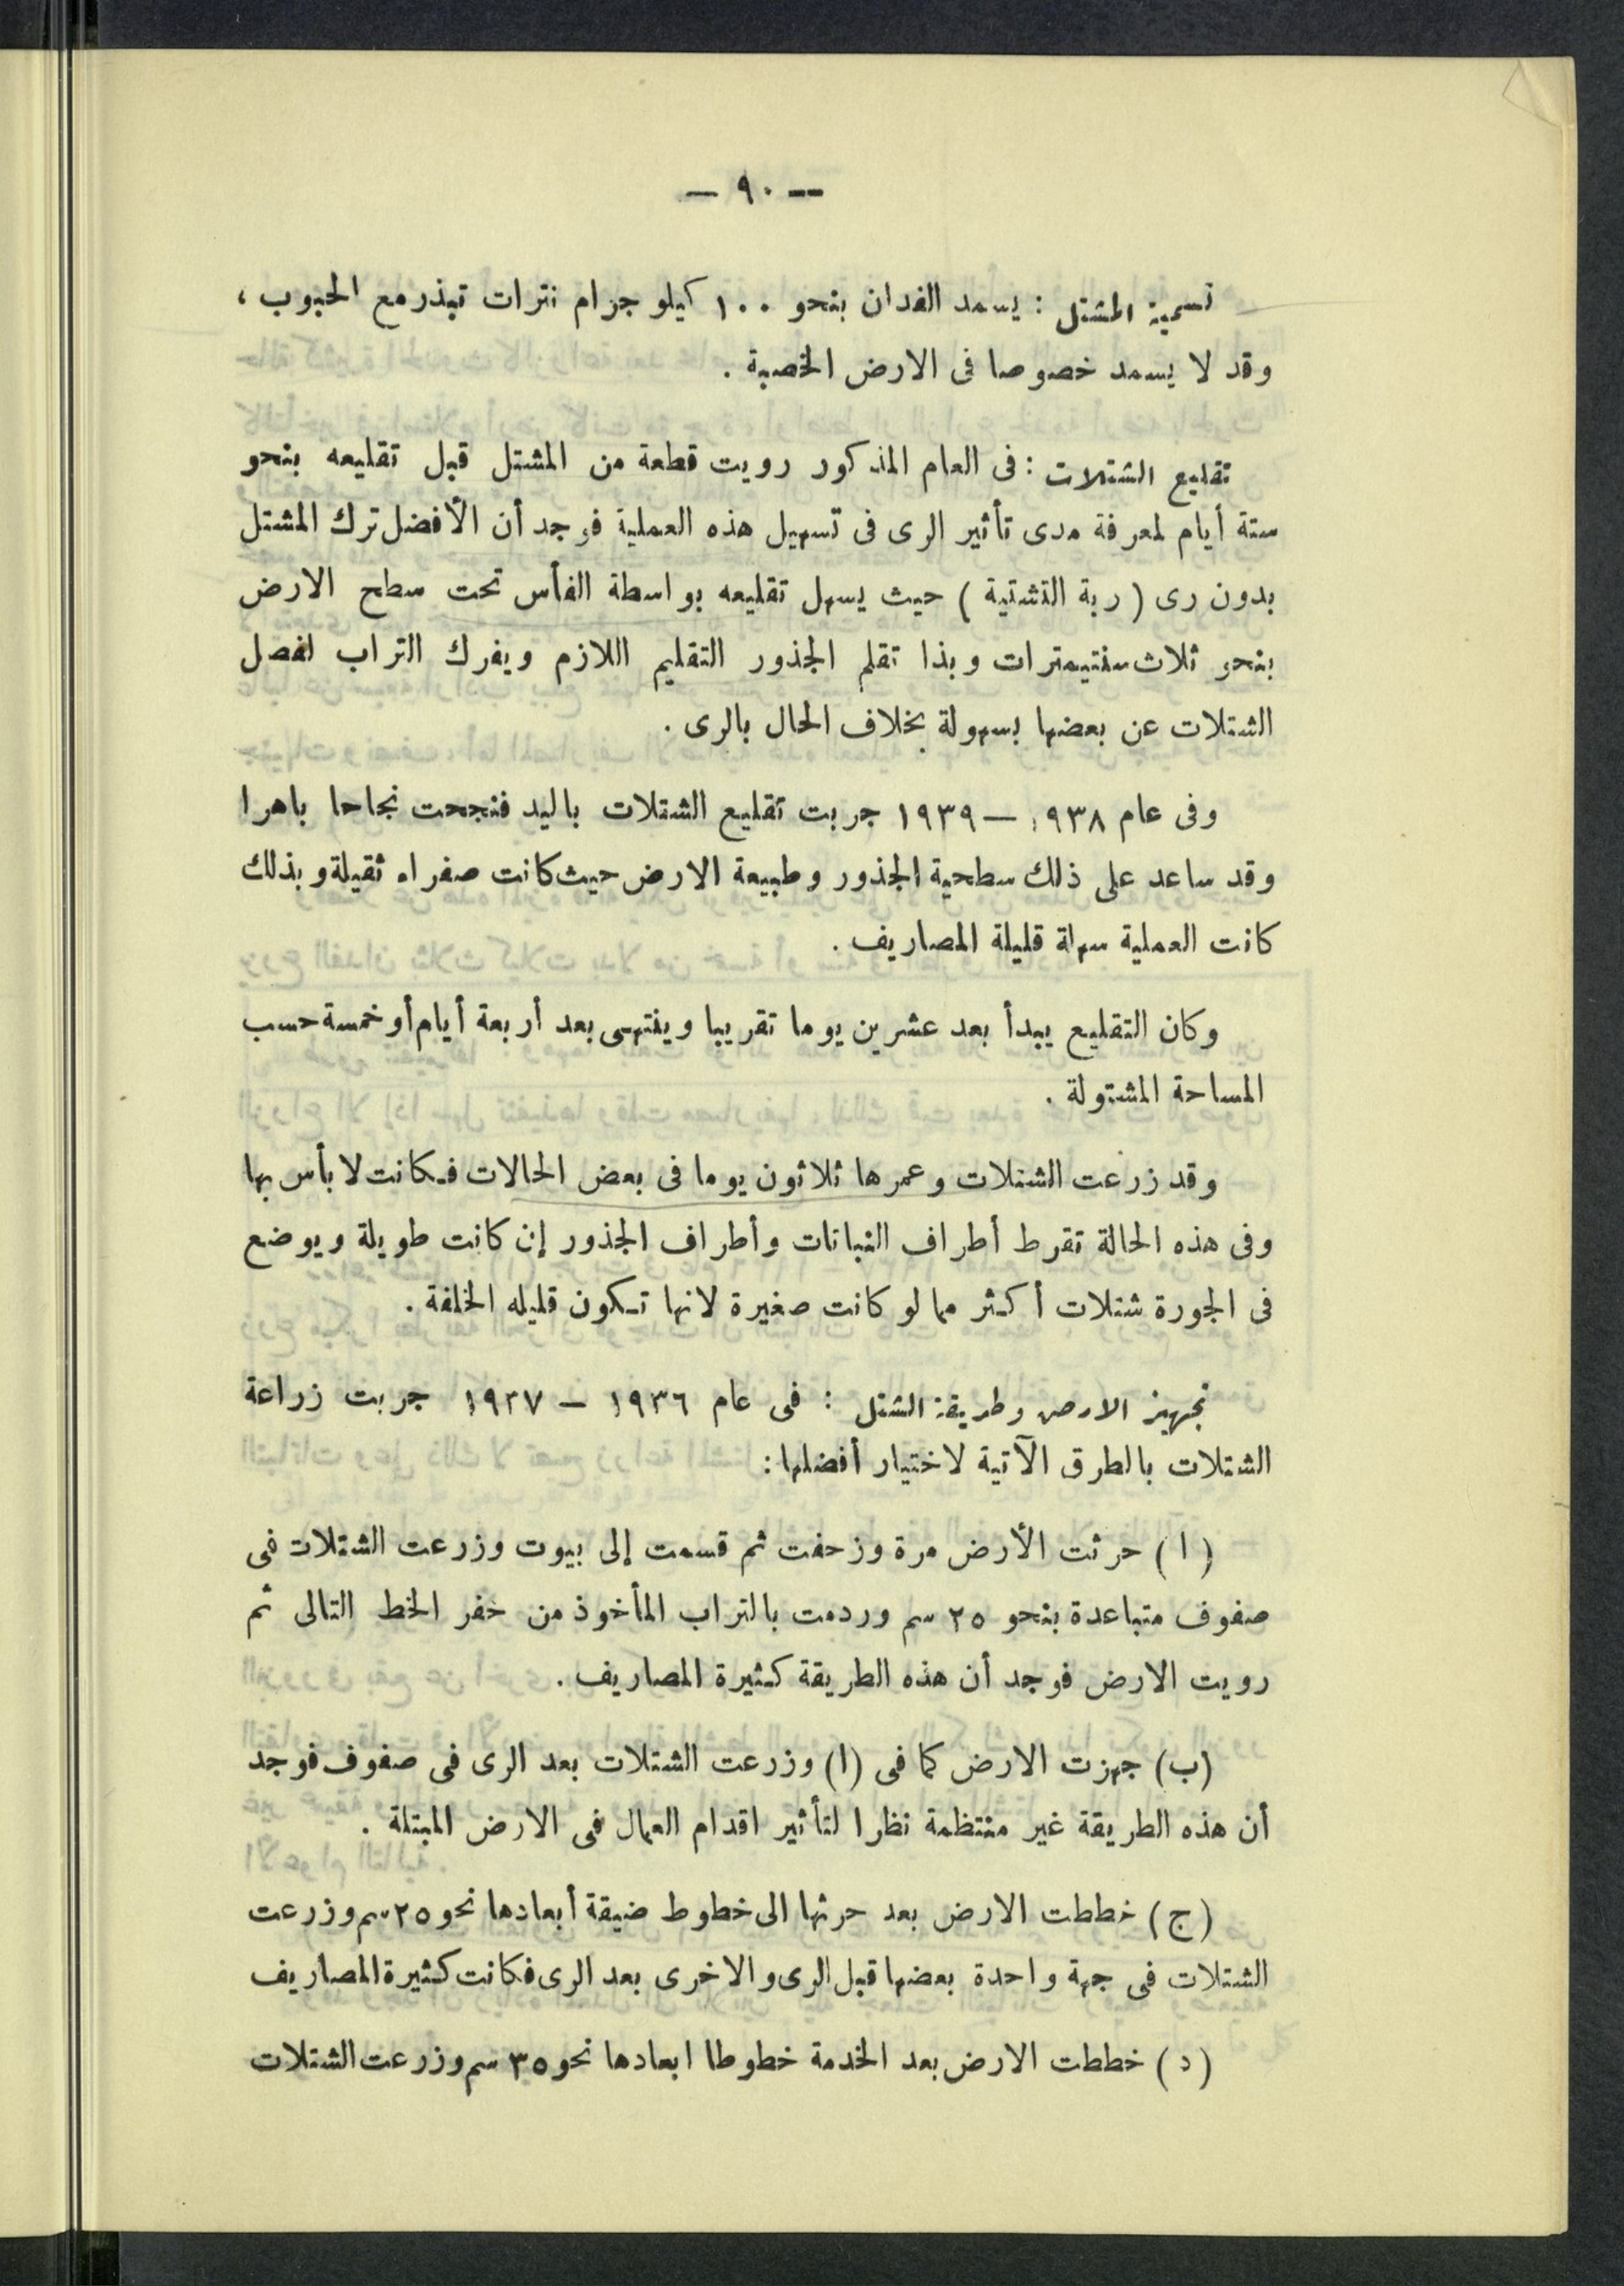 — ٩٠ —
تسمية المشتل : يسمد الفدان بنحو ١٠٠ كيلو جرام نترات تبذر مع الحبوب ،
وقد لا يسمد خصوصا فى الارض الخصبة .
تقليع الشتلات : فى العام المذكور رويت قطعة من المشتل قبل تقليعه بنحو
ستة أيام لمعرفة مدى تأثير الرى فى تسهيل هذه العملية فوجد أن الأفضل ترك المشتل
بدون رى ( ربة التشتية ) حيث يسهل تقليعه بواسطة الفأس تحت سطح الارض
بنحو ثلاث سنتيمترات وبذا تقلم الجذور التقليم اللازم ويفرك التراب لفصل
الشتلات عن بعضها بسهولة بخلاف الحال بالرى .
وفى عام ١٩٣٨ — ١٩٣٩ جربت تقليع الشتلات باليد فنجحت نجاحا باهرا
وقد ساعد على ذلك سطحية الجذور وطبيعة الارض حيث كانت صفراء ثقيلة وبذلك
كانت العملية سهلة قليلة المصاريف .
وكان التقليع يبدأ بعد عشرين يوما تقريبا وينتهى بعد أربعة أيام أو خمسة حسب
المساحة المشتولة .
وقد زرعت الشتلات وعمرها ثلاثون يوما فى بعض الحالات فكانت لا بأس بها
وفى هذه الحالة تقرط أطراف النباتات وأطراف الجذور إن كانت طويلة ويوضع
فى الجورة شتلات أكثر مما لو كانت صغيرة لانها تكون قليله الخلفة .
تجهيز الارض وطريقة الشتل : فى عام ١٩٣٦ — ١٩٣٧ جربت زراعة
الشتلات بالطرق الآتية لاختيار أفضلها :
( ا ) حرثت الأرض مرة وزحفت ثم قسمت إلى بيوت وزرعت الشتلات فى
صفوف متباعدة بنحو ٢٥ سم وردمت بالتراب المأخوذ من حفر الخط التالى ثم
رويت الارض فوجد أن هذه الطريقة كثيرة المصاريف .
(ب) جهزت الارض كما فى (ا) وزرعت الشتلات بعد الرى فى صفوف فوجد
أن هذه الطريقة غير منتظمة نظرا لتأثير اقدام العمال فى الارض المبتلة .
(ج) خططت الارض بعد حرثها الى خطوط ضيقة أبعادها نحو ٢٥ سم وزرعت
الشتلات فى جهة واحدة بعضها قبل الرى والاخرى بعد الرى فكانت كثيرة المصاريف
(د) خططت الارض بعد الخدمة خطوطا ابعادها نحو ٣٥ سم وزرعت الشتلات